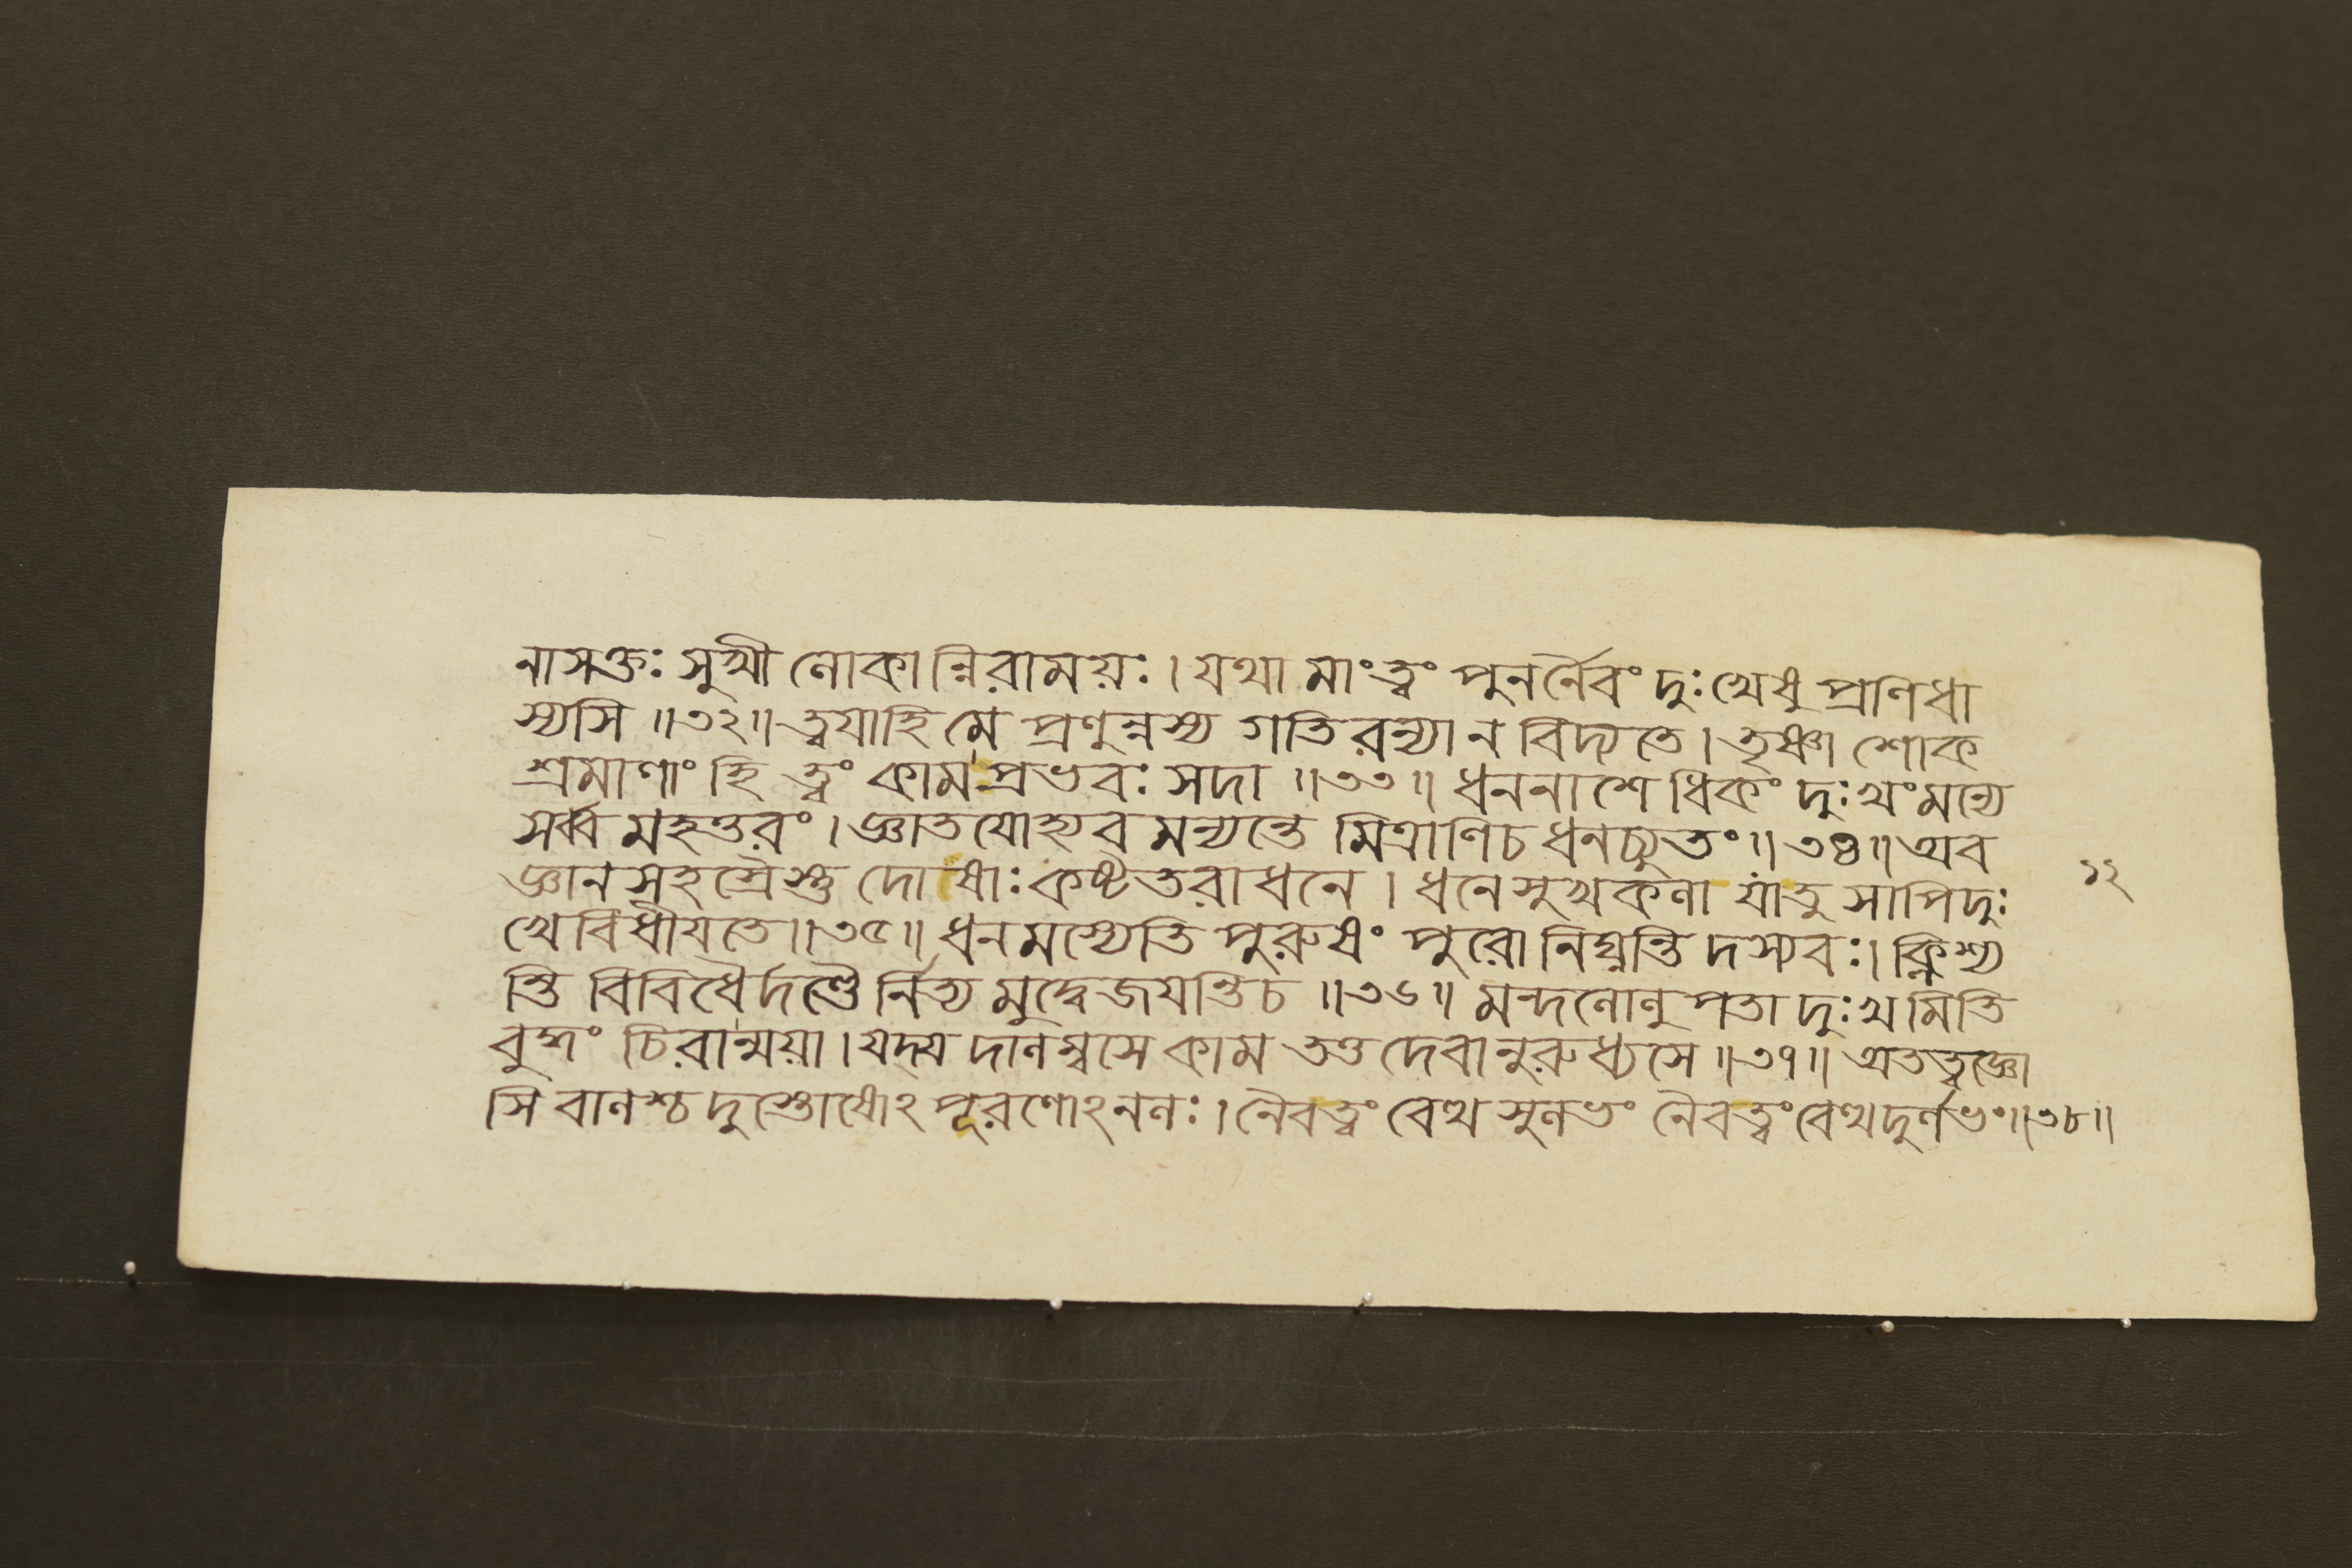 নাসক্তঃ সুখী লোকান্নিরাময়ঃ । যথা মাং ত্বং পুনর্নৈবং দুঃখেষু প্রণিধা
স্যসি ॥৩২॥ ত্বযাহি মে প্রণুন্নস্য গতিরন্যা ন বিদ্যতে । তৃষ্ণা শোক
শ্রমাণাং হি ত্বং কাম প্রভবঃ সদা ॥৩৩॥ ধননাশেধিকং দুঃখং মন্যে
সর্ব্ব মহত্তরং । জ্ঞাতযোহ্যব মন্যন্তে মিত্রাণিচ ধনচ্যুতং ॥৩৪॥ অব
জ্ঞানসহস্রৈস্তু দোষাঃ কষ্টতরা ধনে । ধনে সুখকলা যাতু সাপি দুঃ
খেবিধীযতে ॥৩৫॥ ধনমস্যেতি পুরুষং পুরো নিঘ্নন্তি দস্যবঃ । ক্লিশ্য
ন্তি বিবিধৈর্দণ্ডৈ র্নিত্য মুদ্বেজযন্তিচ ॥৩৬॥ মন্দলোলুপতা দুঃখমিতি
বুদ্ধং চিরান্ময়া । যদ্য দালম্বসে কাম তত্ত দেবানুরুধ্যসে ॥৩৭॥ অতত্ত্বজ্ঞো
সি বালশ্চ দুস্তোষোঽপূরণোঽনলঃ । নৈবত্বং বেত্থ সুলভং নৈবত্বং বেত্থ দুর্লভং ॥৩৮॥
১২